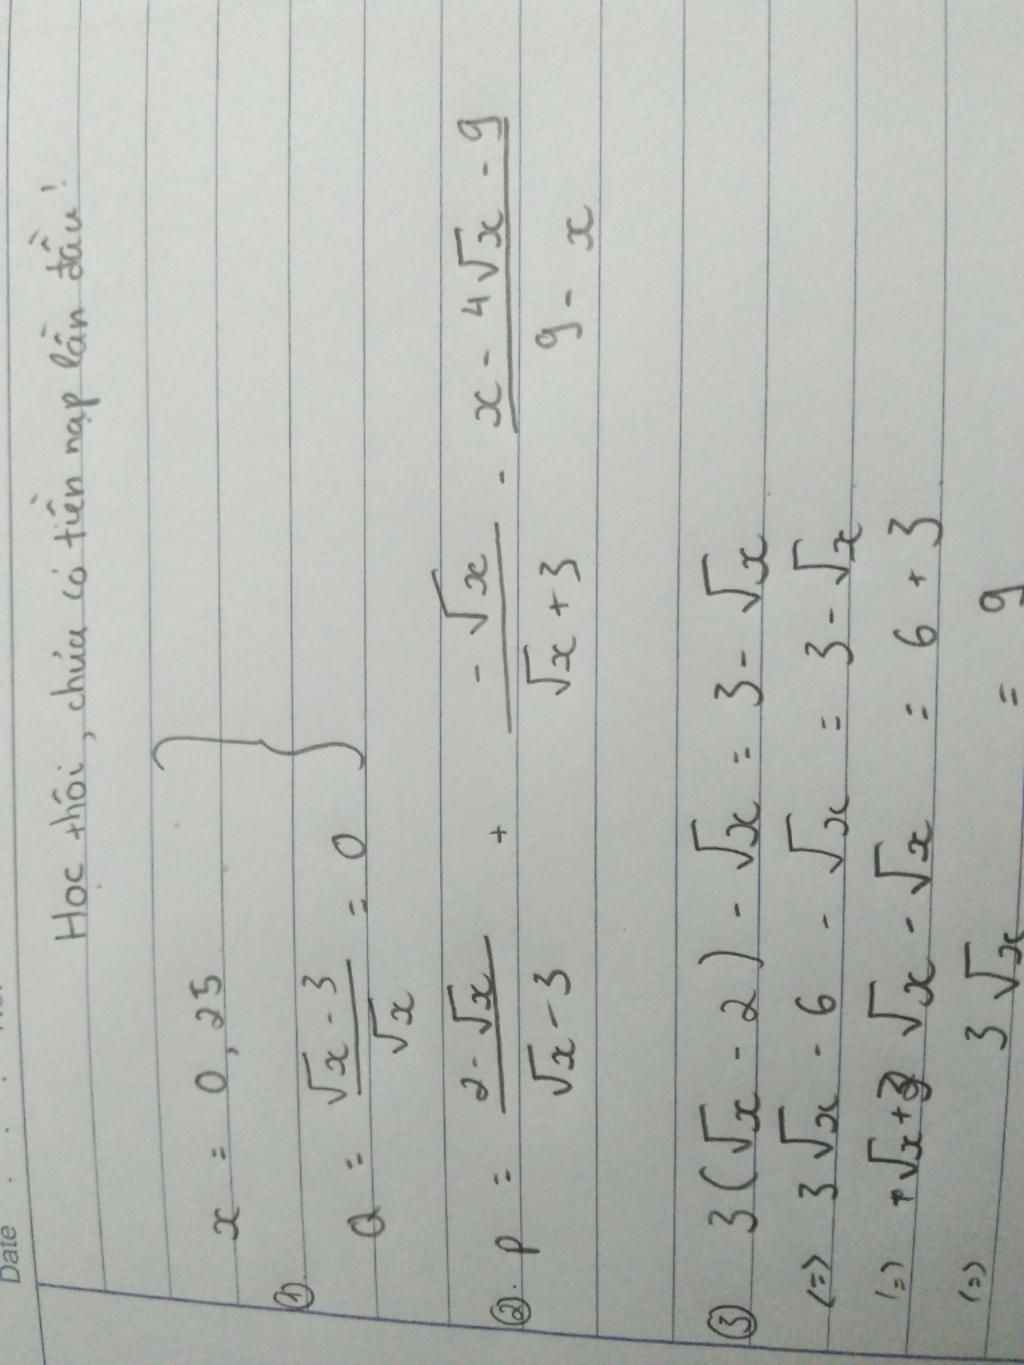 Date
Học thôi, chúa có tiền nạp lần đầu!
x = 0,25
① Q = (√x - 3)/√x = 0
②. P = (2 - √x)/(√x - 3) + (-√x)/(√x + 3) - (x - 4√x - 9)/(9 - x)
③ 3(√x - 2) - √x = 3 - √x
(=) 3√x - 6 - √x = 3 - √x
(=) √x - √x = 6 + 3
(=) 3√x = 9